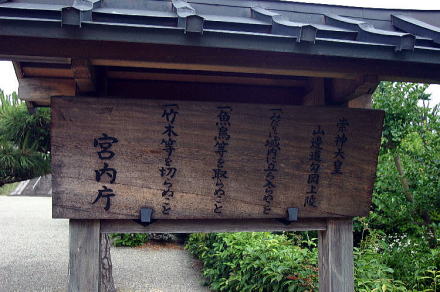 崇神天皇
山邊道勾岡上陵
一みだりに域内に立ち入らぬこと
一魚鳥等を取らぬこと
一竹木等を切らぬこと
宮内庁